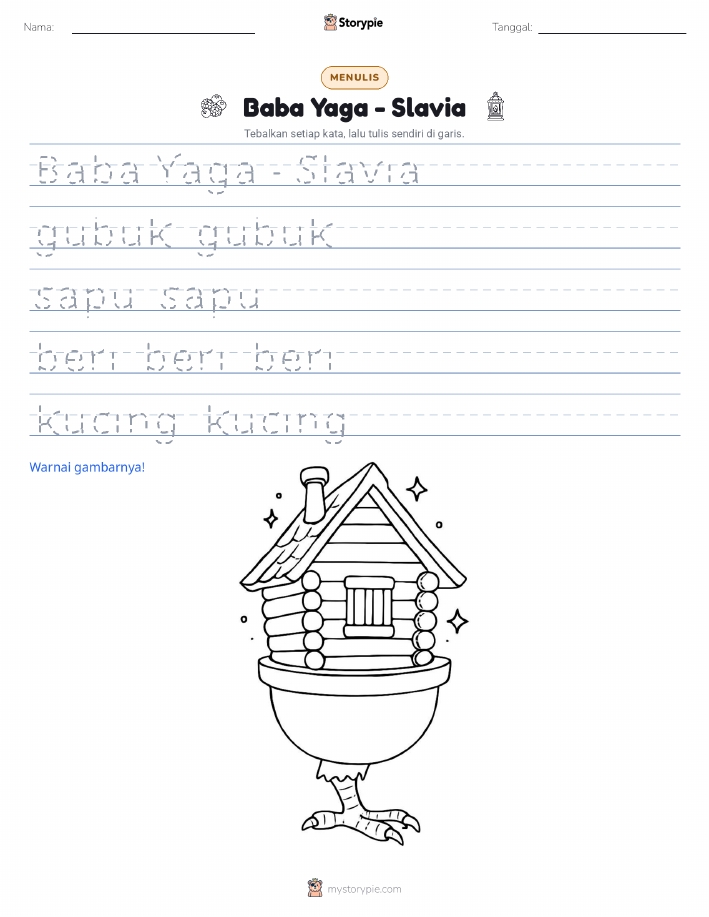 Nama: Storypie Tanggal:
MENULIS
Baba Yaga - Slavia
Tebalkan setiap kata, lalu tulis sendiri di garis.
Baba Yaga - Slavia
gubuk gubuk
sapu sapu
beri beri beri
kucing kucing
Warnai gambarnya!
mystorypie.com